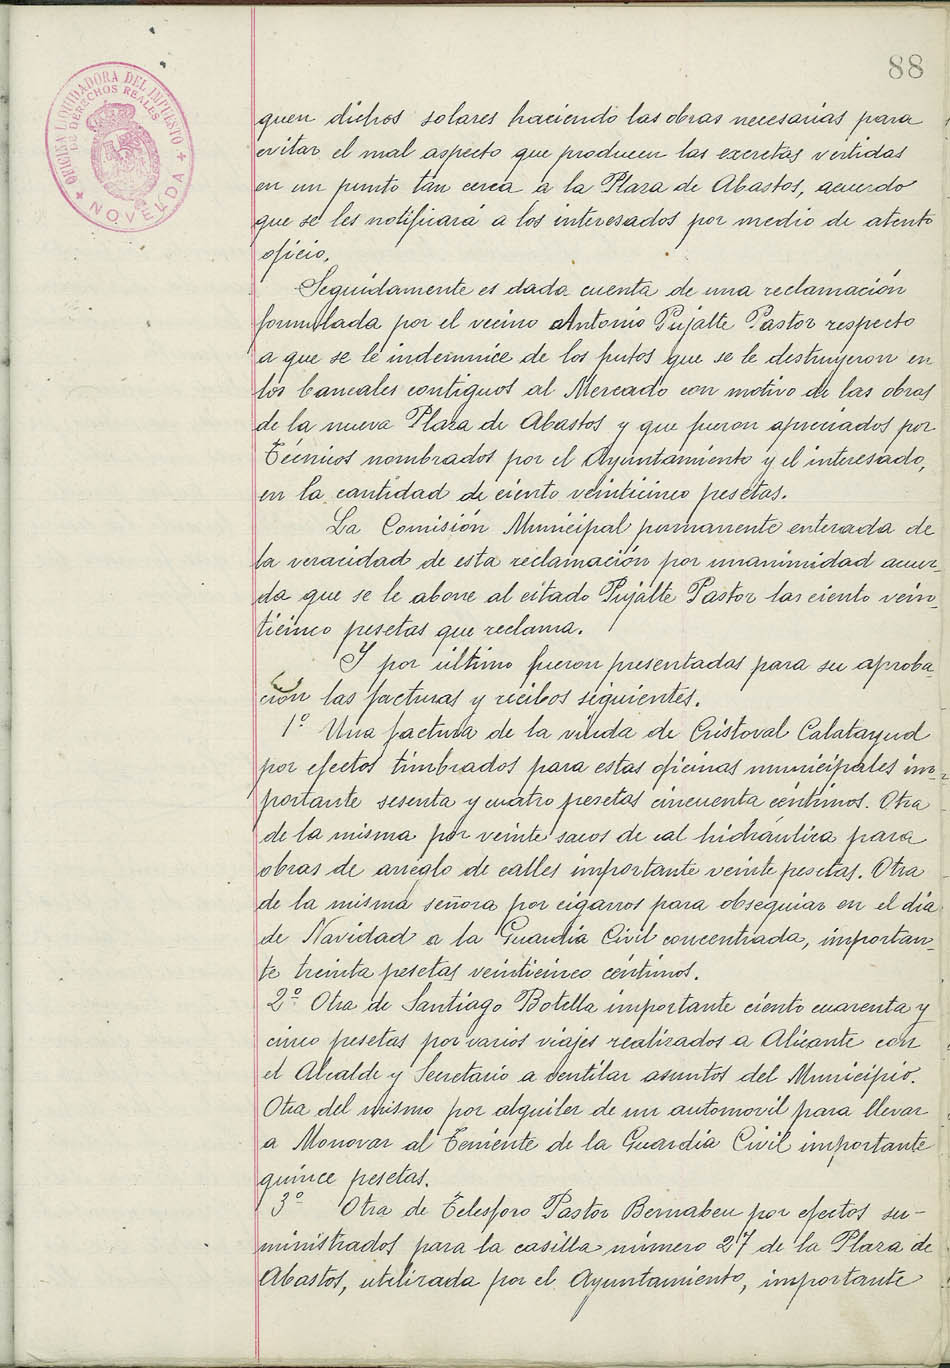 88
OFICINA LIQUIDADORA DEL IMPUESTO
DE DERECHOS REALES
NOVELDA
quen dichos solares haciendo las obras necesarias para
evitar el mal aspecto que producen las excretas vertidas
en un punto tan cerca a la Plaza de Abastos, acuerdo
que se les notificará a los interesados por medio de atento
oficio.
Seguidamente es dada cuenta de una reclamación
formulada por el vecino Antonio Pujalte Pastor respecto
a que se le indemnice de los frutos que se le destruyeron en
los bancales contiguos al Mercado con motivo de las obras
de la nueva Plaza de Abastos y que fueron apreciados por
Técnicos nombrados por el Ayuntamiento y el interesado,
en la cantidad de ciento veinticinco pesetas.
La Comisión Municipal permanente enterada de
la veracidad de esta reclamación por unanimidad acuer-
da que se le abone al citado Pujalte Pastor las ciento vein-
ticinco pesetas que reclama.
Y por último fueron presentadas para su aproba-
ción las facturas y recibos siguientes.
1º Una factura de la viuda de Cristoval Calatayud
por efectos timbrados para estas oficinas municipales im-
portante sesenta y cuatro pesetas cincuenta céntimos. Otra
de la misma por veinte sacos de cal hidráulica para
obras de arreglo de calles importante veinte pesetas. Otra
de la misma señora por cigarros para obsequiar en el día
de Navidad a la Guardia Civil concentrada, importan-
te treinta pesetas veinticinco céntimos.
2º Otra de Santiago Botella importante ciento cuarenta y
cinco pesetas por varios viajes realizados a Alicante con
el Alcalde y Secretario a ventilar asuntos del Municipio.
Otra del mismo por alquiler de un automovil para llevar
a Monovar al Teniente de la Guardia Civil importante
quince pesetas.
3º Otra de Telesforo Pastor Bernabeu por efectos su-
ministrados para la casilla número 27 de la Plaza de
Abastos, utilizada por el Ayuntamiento, importante